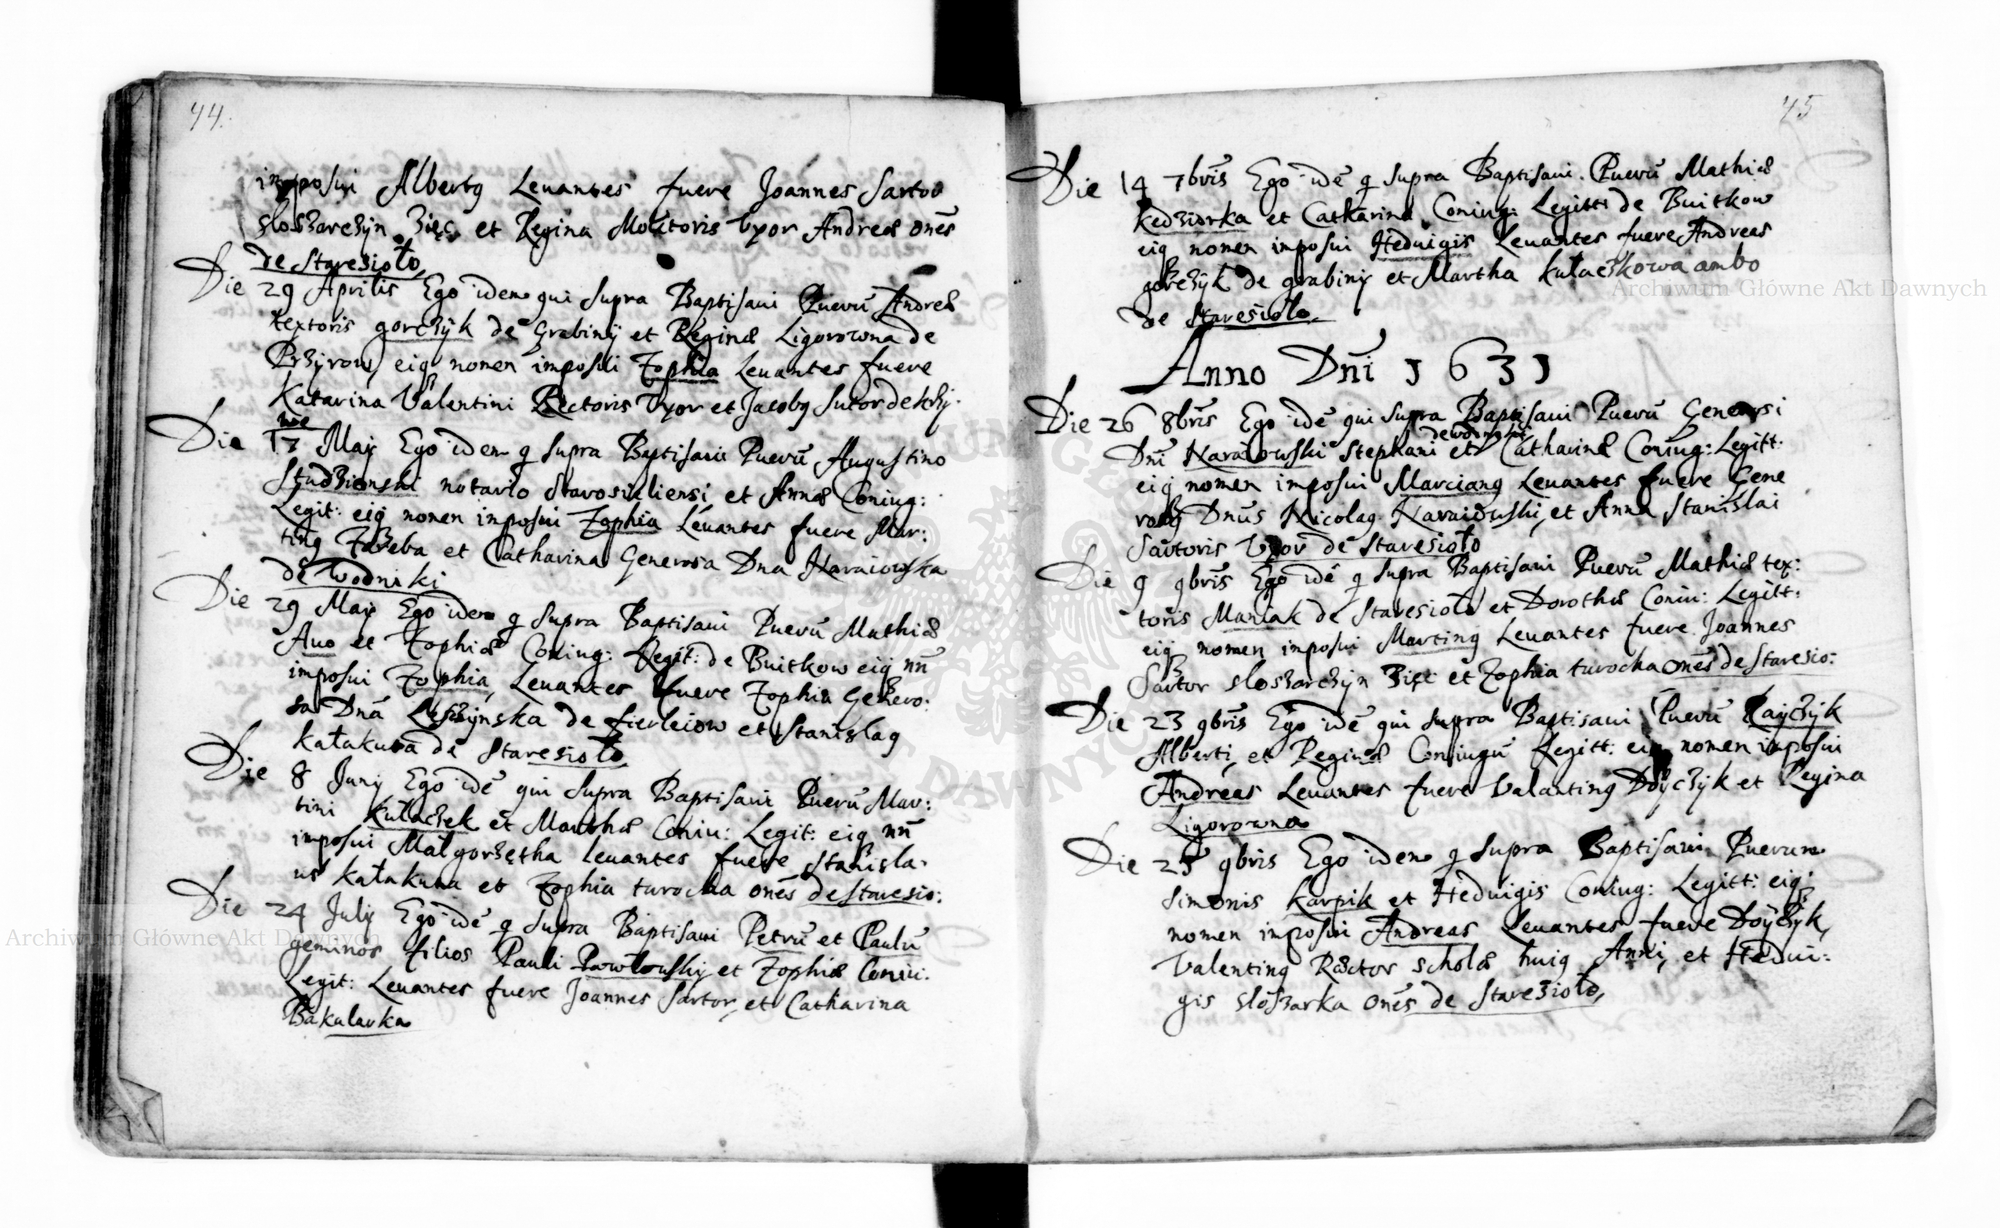 44.
imposui Albertꝯ Leuantes fuere Joannes Sartor
sloszarczyn zięc et Regina Molitoris Vxor Andreæ oñes
de Staresioło
Die 29 Aprilis Ego idem qui supra Baptisaui Pueru᷈ Andreæ
textoris gorczyk de Grabiny et Reginæ Ligorowna de
Przyrow, eiꝯ nomen imposui Zophia Leuantes fuere
Katarina Valentini Rectoris Vxor et Jacobꝯ Sutor de
Die 17 Maÿ Ego idem q supra Baptisaui Pueru᷈ Augustino
Studzienski notario Starosieliensi et Annæ Coniug:
Legit: eiꝯ nomen imposui Zophia Leuantes fuere Mar:
tinꝯ Zareba et Catharina Generosa Dna Naraiowska
de Wodniki
Die 29 Maÿ Ego idem q supra Baptisaui Pueru᷈ Mathiæ
Auo et Zophiæ Coniug: Legit: de Buitkow eiꝯ nn᷈
imposui Zophia, Leuantes fuere Zophia Genero:
sa Dnã Leszczynska de fierleiow et Stanislaꝯ
Katakura de Staresioło
Die 8 Junÿ Ego ide᷈ qui supra Baptisaui Pueru᷈ Mar:
tini Kułaczek et Marthæ Coniu: Legit: eiꝯ nn᷈
imposui Małgorzętha leuantes fuere Stanisla:
us katakura et Zophia turocha oñes de Staresio:
Die 24 Julÿ Ego ide᷈ q supra Baptisaui Petru᷈ et Paulu᷈
geminos filios Pauli Pawłowskÿ et Zophiæ Coniu:
Legit: Leuantes fuere Joannes Sartor, et Catharina
Bakularka
45
Die 14 7bris Ego ide᷈ q supra Baptisaui Pueru᷈ Mathiæ
Kędziorka et Catharina Coniug: Legitt: de Buitkow
eiꝯ nomen imposui Heduigis Leuantes fuere Andreas
gorczyk de grabiny et Martha kułaczkowa ambo
de Staresioło
Anno Dñi 1631
Die 26 8bris Ego ide᷈ qui supra Baptisaui Pueru᷈ Generosi
Dñi Naraiowski Stephani et Catharinæ Coniug: Legitt:
eiꝯ nomen imposui Marcianꝯ Leuantes fuere Gene
rosꝯ Dnus Nicolaꝯ Naraiowski, et Anna Stanislai
Sartoris Vxor de Staresioło
Die 9 9bris Ego ide᷈ q supra Baptisaui Pueru᷈ Mathiæ tex:
toris Maniak de Staresioło et Dorotheæ Coniu: Legitt:
eiꝯ nomen imposui Martinꝯ Leuantes fuere Joannes
Sartor sloszarczyn zięc et Zophia turocha oñes de Staresio:
Die 23 9bris Ego ide᷈ qui supra Baptisaui Pueru᷈ Rayczyk
Alberti, et Reginæ Coniugu᷈ Legitt: eiꝯ nomen imposui
Andreas Leuantes fuere Valantinꝯ Doyczyk et Regina
Ligorowna
Die 25 9bris Ego idem q supra Baptisaui Puerum
Simonis Karpik et Heduigis Coniug: Legitt: eiꝯ
nomen imposui Andreas Leuantes fuere Doyczyk,
Valentinꝯ Rector scholæ huiꝯ Anni, et Hedui:
gis sloszarka oñes de Staresioło,
Archiwum Główne Akt Dawnych
Archiwum Główne Akt Dawnych